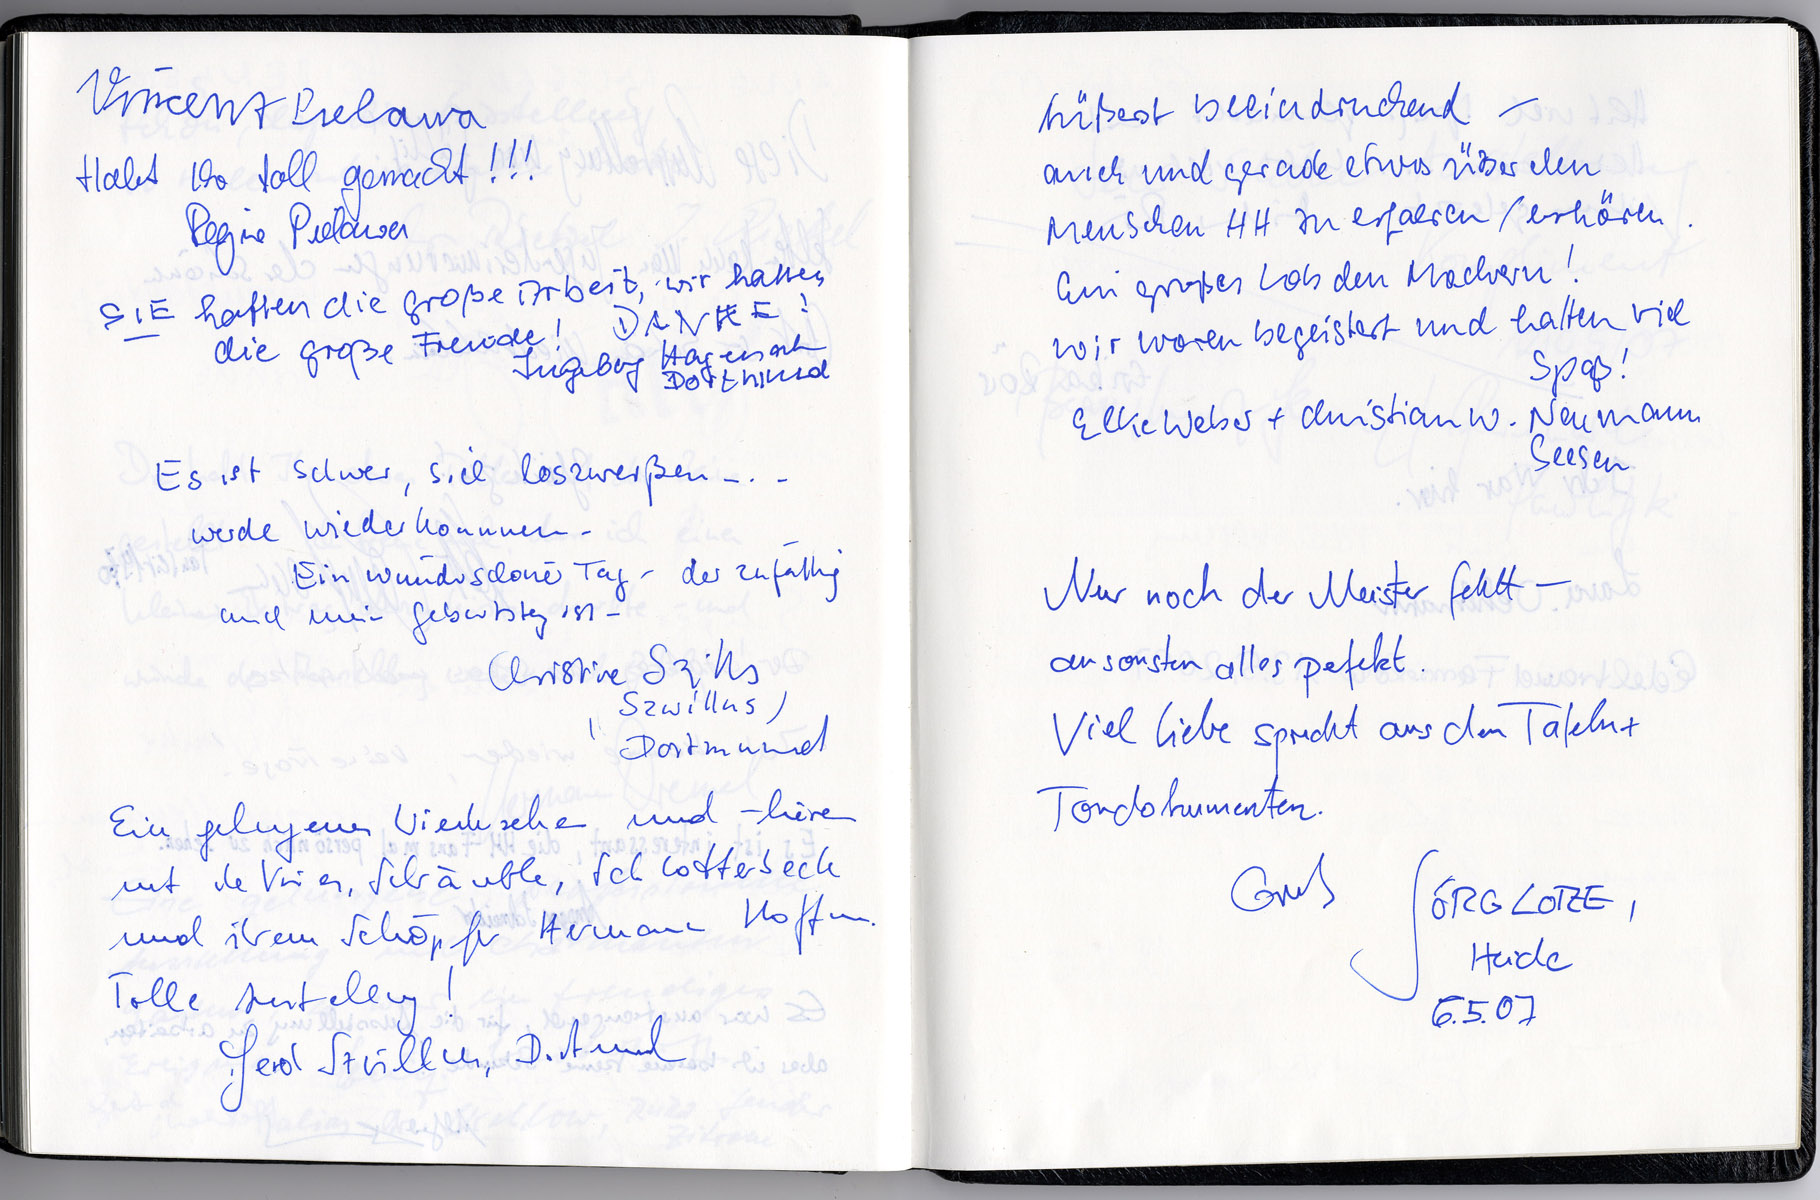 Vincent Pielawa
Habt Ihr toll gemacht!!!
Regine Pielawa
SIE hatten die große Arbeit, wir hatten
die große Freude! DANKE!
Ingeborg
Dortmund
Es ist schwer, sich loszureißen - . -
werde wiederkommen -
Ein wunderschöner Tag - der zufällig
auch mein Geburtstag ist -
Christine
Szwillus)
Dortmund
Ein gelungenes Wiedersehen und -hören
mit de Vries, Schäuble, Schlotterbeck
und ihrem Schöpfer Hermann Hoffm.
Tolle Ausstellung!
Gerd Szwillus, Dortmund
Äußerst beeindruckend -
auch und gerade etwas über den
Menschen HH zu erfahren / erhören.
Ein großes Lob den Machern!
Wir waren begeistert und hatten viel
Spaß!
Elke Weber + Christian W. Neumann
Seesen
Nur noch der Meister fehlt -
ansonsten alles perfekt.
Viel Liebe spricht aus den Tafeln +
Tondokumenten.
Gruß JÖRG LOTZE,
Heide
6.5.07